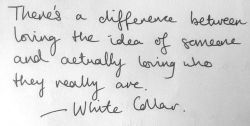 There's a difference between
loving the idea of someone
and actually loving who
they really are.
— White Collar.